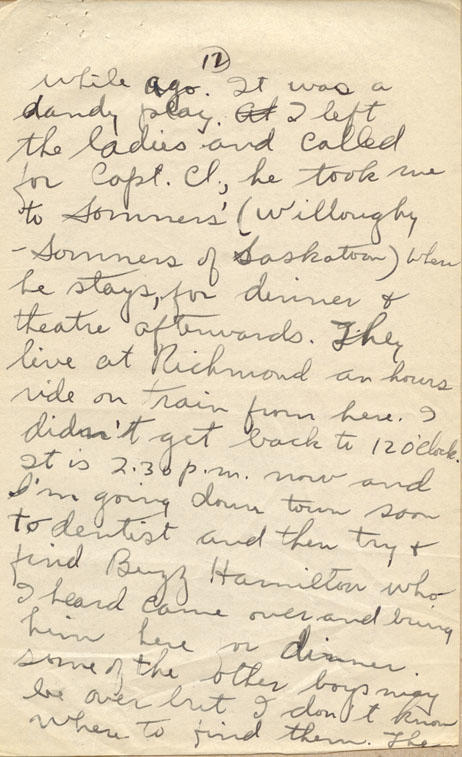 12
while ago. It was a
dandy play. At I left
the ladies and called
for Capt. Cl, he took me
to Sommers' (Willoughby
- Sommers of Saskatoon) where
he stays, for dinner &
theatre afterwards. They
live at Richmond an hours
ride on train from here. I
didn't get back to 12 o'clock.
It is 2.30 p.m. now and
I'm going down town soon
to dentist and then try &
find Buzz Hamilton who
I heard came over and bring
him here or dinner.
some of the other boys may
be over but I don't know
where to find them. The